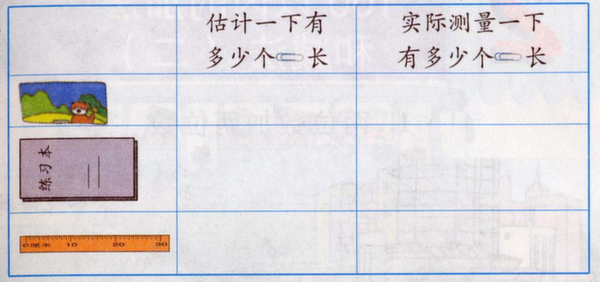 估计一下有
多少个 长
实际测量一下
有多少个 长
练习本
0厘米 10 20 30